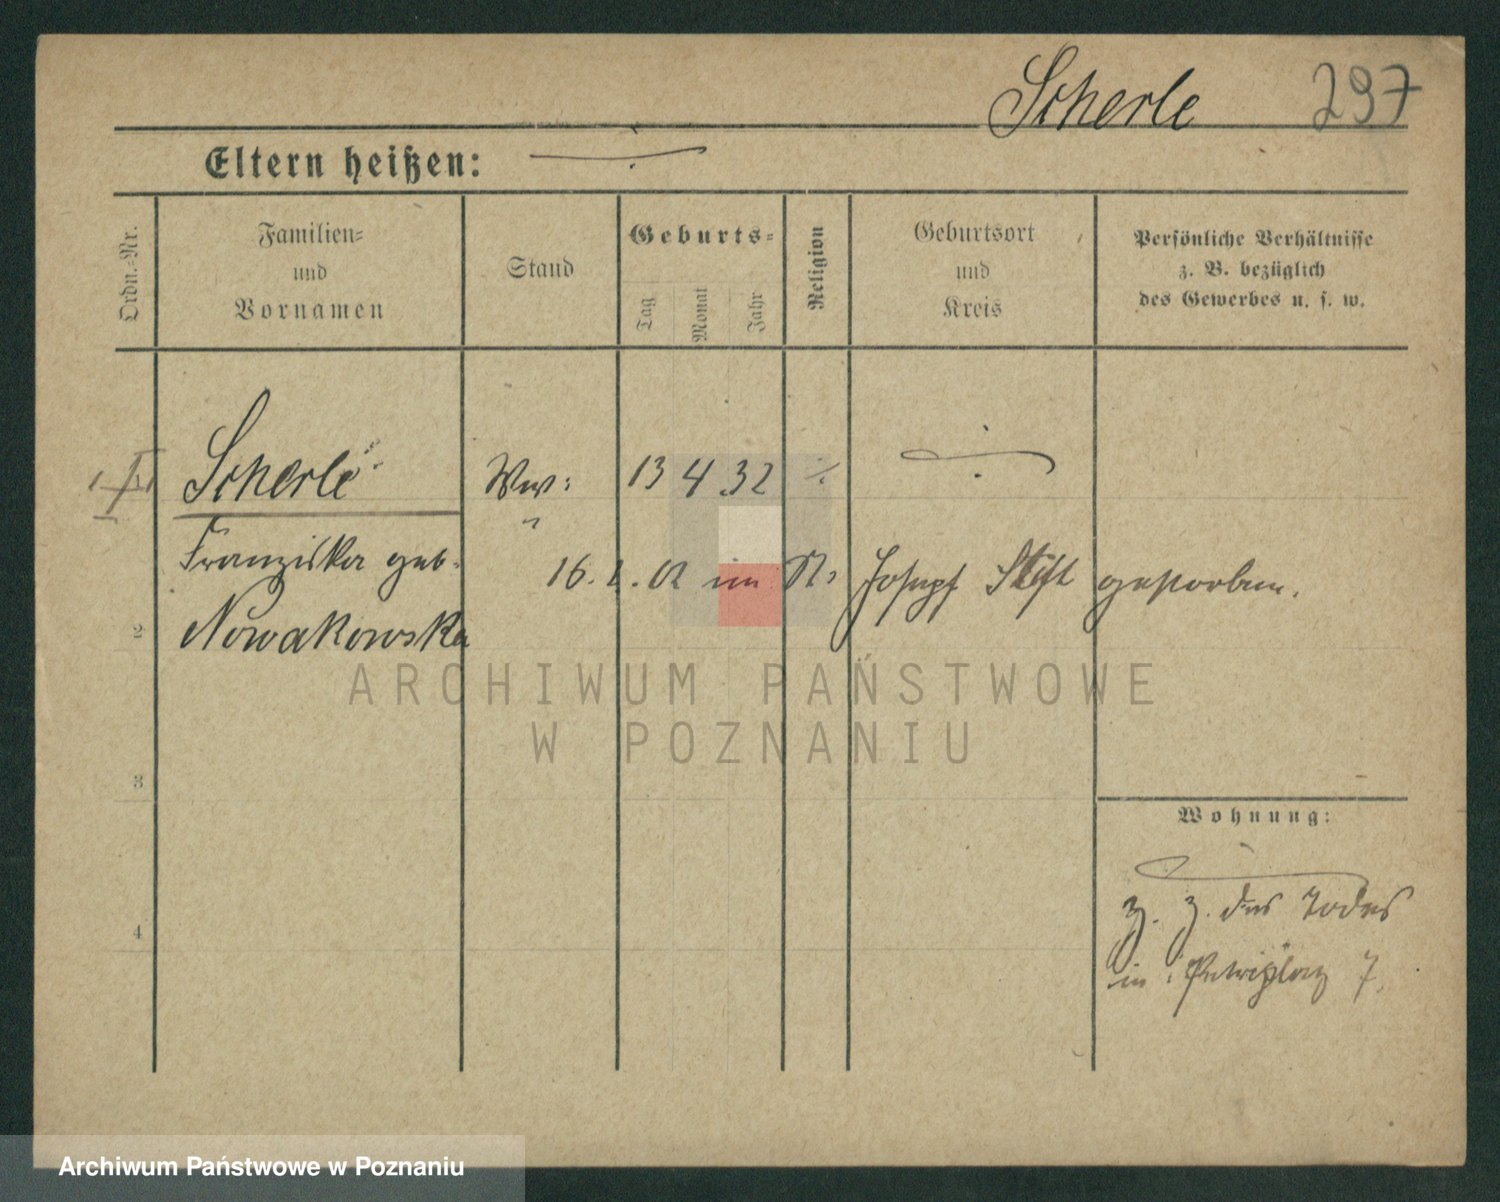 Scherle 297
Eltern heißen:
Ordn.-Nr.
Familien-
und
Vornamen
Stand
Geburts-
Tag
Monat
Jahr
Religion
Geburtsort
und
Kreis
Persönliche Verhältnisse
z. B. bezüglich
des Gewerbes u. s. w.
Scherle Ww: 13 4. 32 ./.
Franziska geb.
16. 1. 02 im St. Josephs Stift gestorben.
2 Nowakowska
3
4
Wohnung:
z. Z. des Todes
in Petriplatz 7.
ARCHIWUM PAŃSTWOWE
W POZNANIU
Archiwum Państwowe w Poznaniu